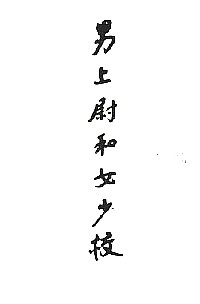 男上尉和女少校